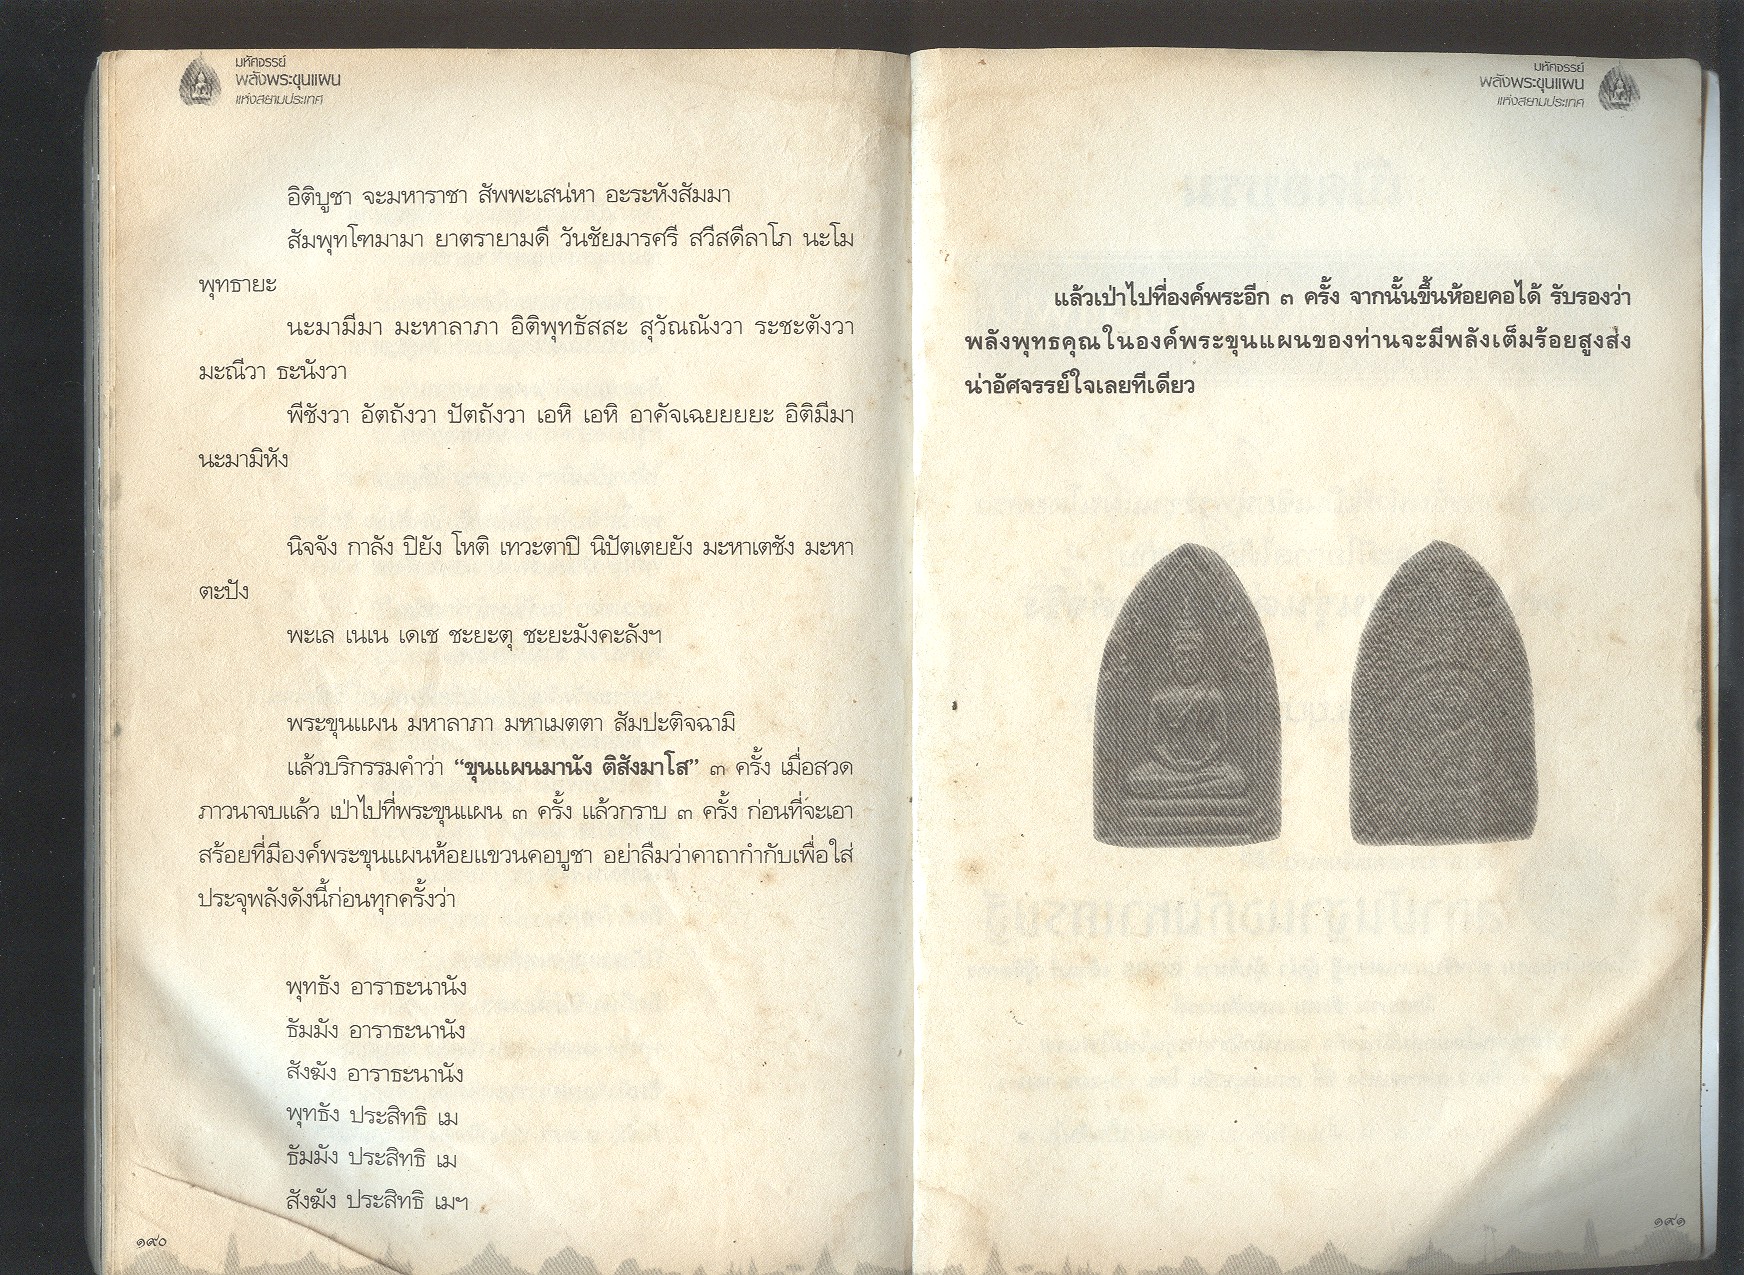 มหัศจรรย์
พลังพระขุนแผน
แห่งสยามประเทศ
อิติบูชา จะมหาราชา สัพพะเสน่หา อะระหังสัมมา
สัมพุทโฑมามา ยาตรายามดี วันชัยมารศรี สวีสดีลาโภ นะโม
พุทธายะ
นะมามีมา มะหาลาภา อิติพุทธัสสะ สุวัณณังวา ระชะตังวา
มะณีวา ธะนังวา
พีชังวา อัตถังวา ปัตถังวา เอหิ เอหิ อาคัจเฉยยยยะ อิติมีมา
นะมามิหัง
นิจจัง กาลัง ปิยัง โหติ เทวะตาปิ นิปัตเตยยัง มะหาเตชัง มะหา
ตะปัง
พะเล เนเน เดเช ชะยะตุ ชะยะมังคะลังฯ
พระขุนแผน มหาลาภา มหาเมตตา สัมปะติจฉามิ
แล้วบริกรรมคำว่า “ขุนแผนมานัง ติสังมาโส” ๓ ครั้ง เมื่อสวด
ภาวนาจบแล้ว เป่าไปที่พระขุนแผน ๓ ครั้ง แล้วกราบ ๓ ครั้ง ก่อนที่จะเอา
สร้อยที่มีองค์พระขุนแผนห้อยแขวนคอบูชา อย่าลืมว่าคาถากำกับเพื่อใส่
ประจุพลังดังนี้ก่อนทุกครั้งว่า
พุทธัง อาราธะนานัง
ธัมมัง อาราธะนานัง
สังฆัง อาราธะนานัง
พุทธัง ประสิทธิ เม
ธัมมัง ประสิทธิ เม
สังฆัง ประสิทธิ เมฯ
๑๙๐
มหัศจรรย์
พลังพระขุนแผน
แห่งสยามประเทศ
แล้วเป่าไปที่องค์พระอีก ๓ ครั้ง จากนั้นขึ้นห้อยคอได้ รับรองว่า
พลังพุทธคุณในองค์พระขุนแผนของท่านจะมีพลังเต็มร้อยสูงส่ง
น่าอัศจรรย์ใจเลยทีเดียว
๑๙๑